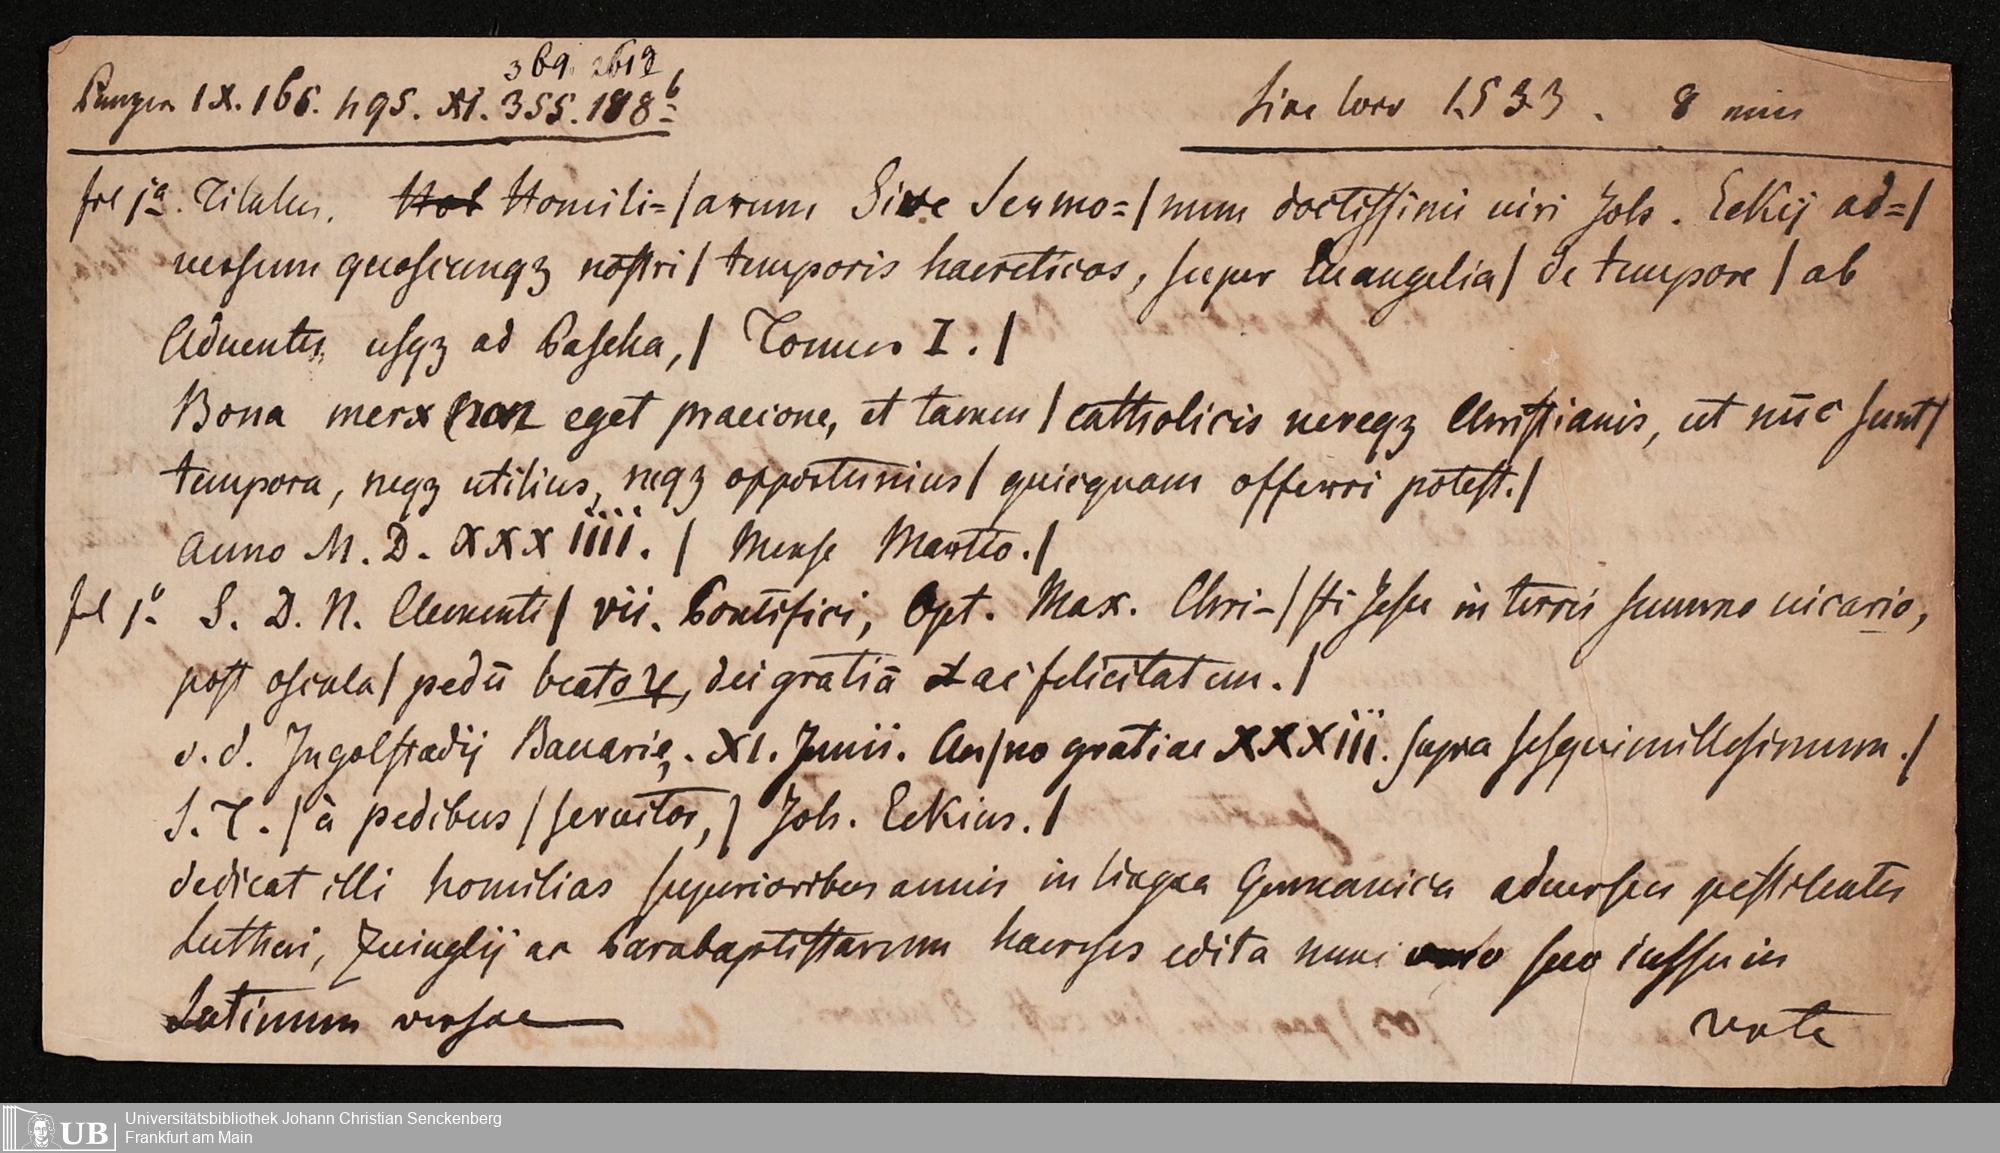 369. 261a
Panzer IX. 165. 495. XI. 355. 188b
Sine loco 1533. 8 min
fol 1a. Titulus. Homili=/arum Sive Sermo=/num doctissimi uiri Joh. Eckij ad=/
uersum quoscunqʒ nostri/ temporis haereticos, super Euangelia/ de tempore/ ab
Aduentu usqʒ ad Pascha,/ Tomus I./
Bona merx non eget praecione, et tamen/ catholicis uereqʒ Christianis, ut nūc sunt/
tempora, neqʒ utilius, neqʒ opportunius/ quicquam offerri potest./
Anno M. D. XXXiiii. / Mense Martio./
fol 1b. S. D. N. Clementi/ vii. Pontifici, Opt. Max. Chri-/sti Jesu in terris summo uicario,
post oscula/ pedū beatoꝝ, dei gratiā ac felicitatem./
v. d. Jngolstadij Bauarię, . XI. Junii. An/no gratiae XXXiii. supra sesquimillesimum./
S. T. / à pedibus / seruitor, / Joh. Eckius./
dedicat illi homilias superioribus annis in lingua Germanica aduersus pestilentes
Lutheri, Zuinglij ac Parabaptistarum haereses edita nunc suo iussu in
Latinum versae
verte
Universitätsbibliothek Johann Christian Senckenberg
Frankfurt am Main
UB